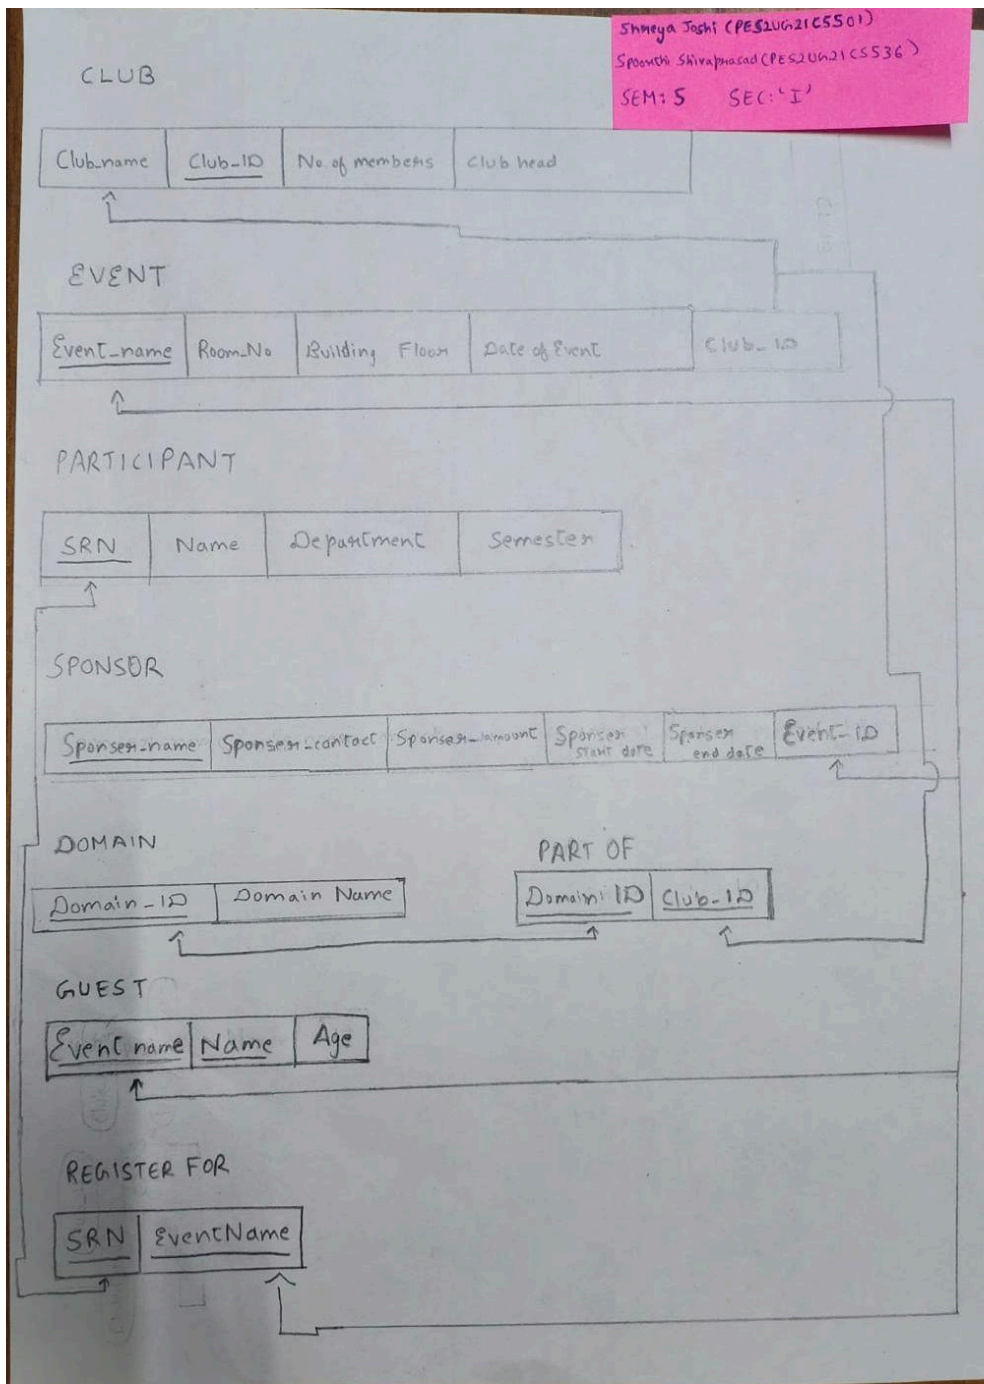 Shreya Joshi (PES2UG21CS501)
Spoorthi Shivaprasad (PES2UG21CS536)
SEM: 5 SEC: 'I'
CLUB
Club_name Club_ID No. of members Club head
EVENT
Event_name Room_No Building Floor Date of Event Club_ID
PARTICIPANT
SRN Name Department Semester
SPONSOR
Sponser_name Sponser_contact Sponser_amount Sponser start date Sponser end date Event_ID
DOMAIN
Domain_ID Domain Name
PART OF
Domain ID Club_ID
GUEST
Event name Name Age
REGISTER FOR
SRN EventName